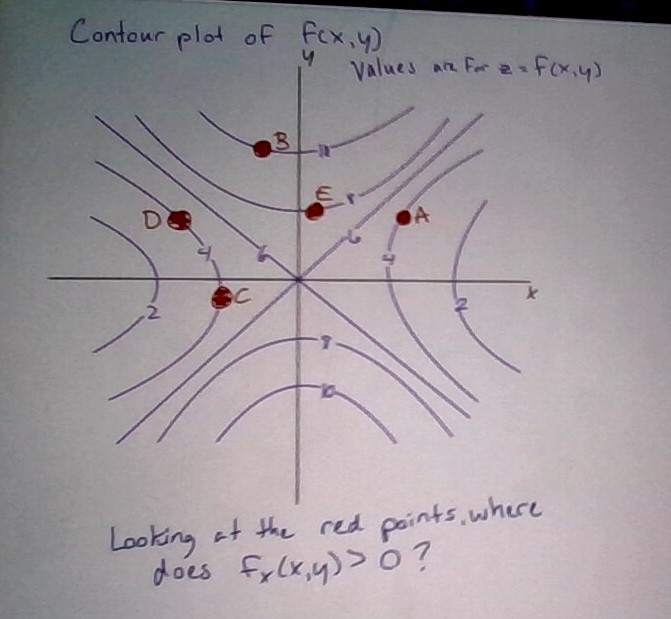 Contour plot of f(x,y)
y
Values are for z = f(x,y)
B
E
8
D
A
6
6
4
4
C
x
2
2
8
10
Looking at the red points, where
does fx(x,y) > 0?